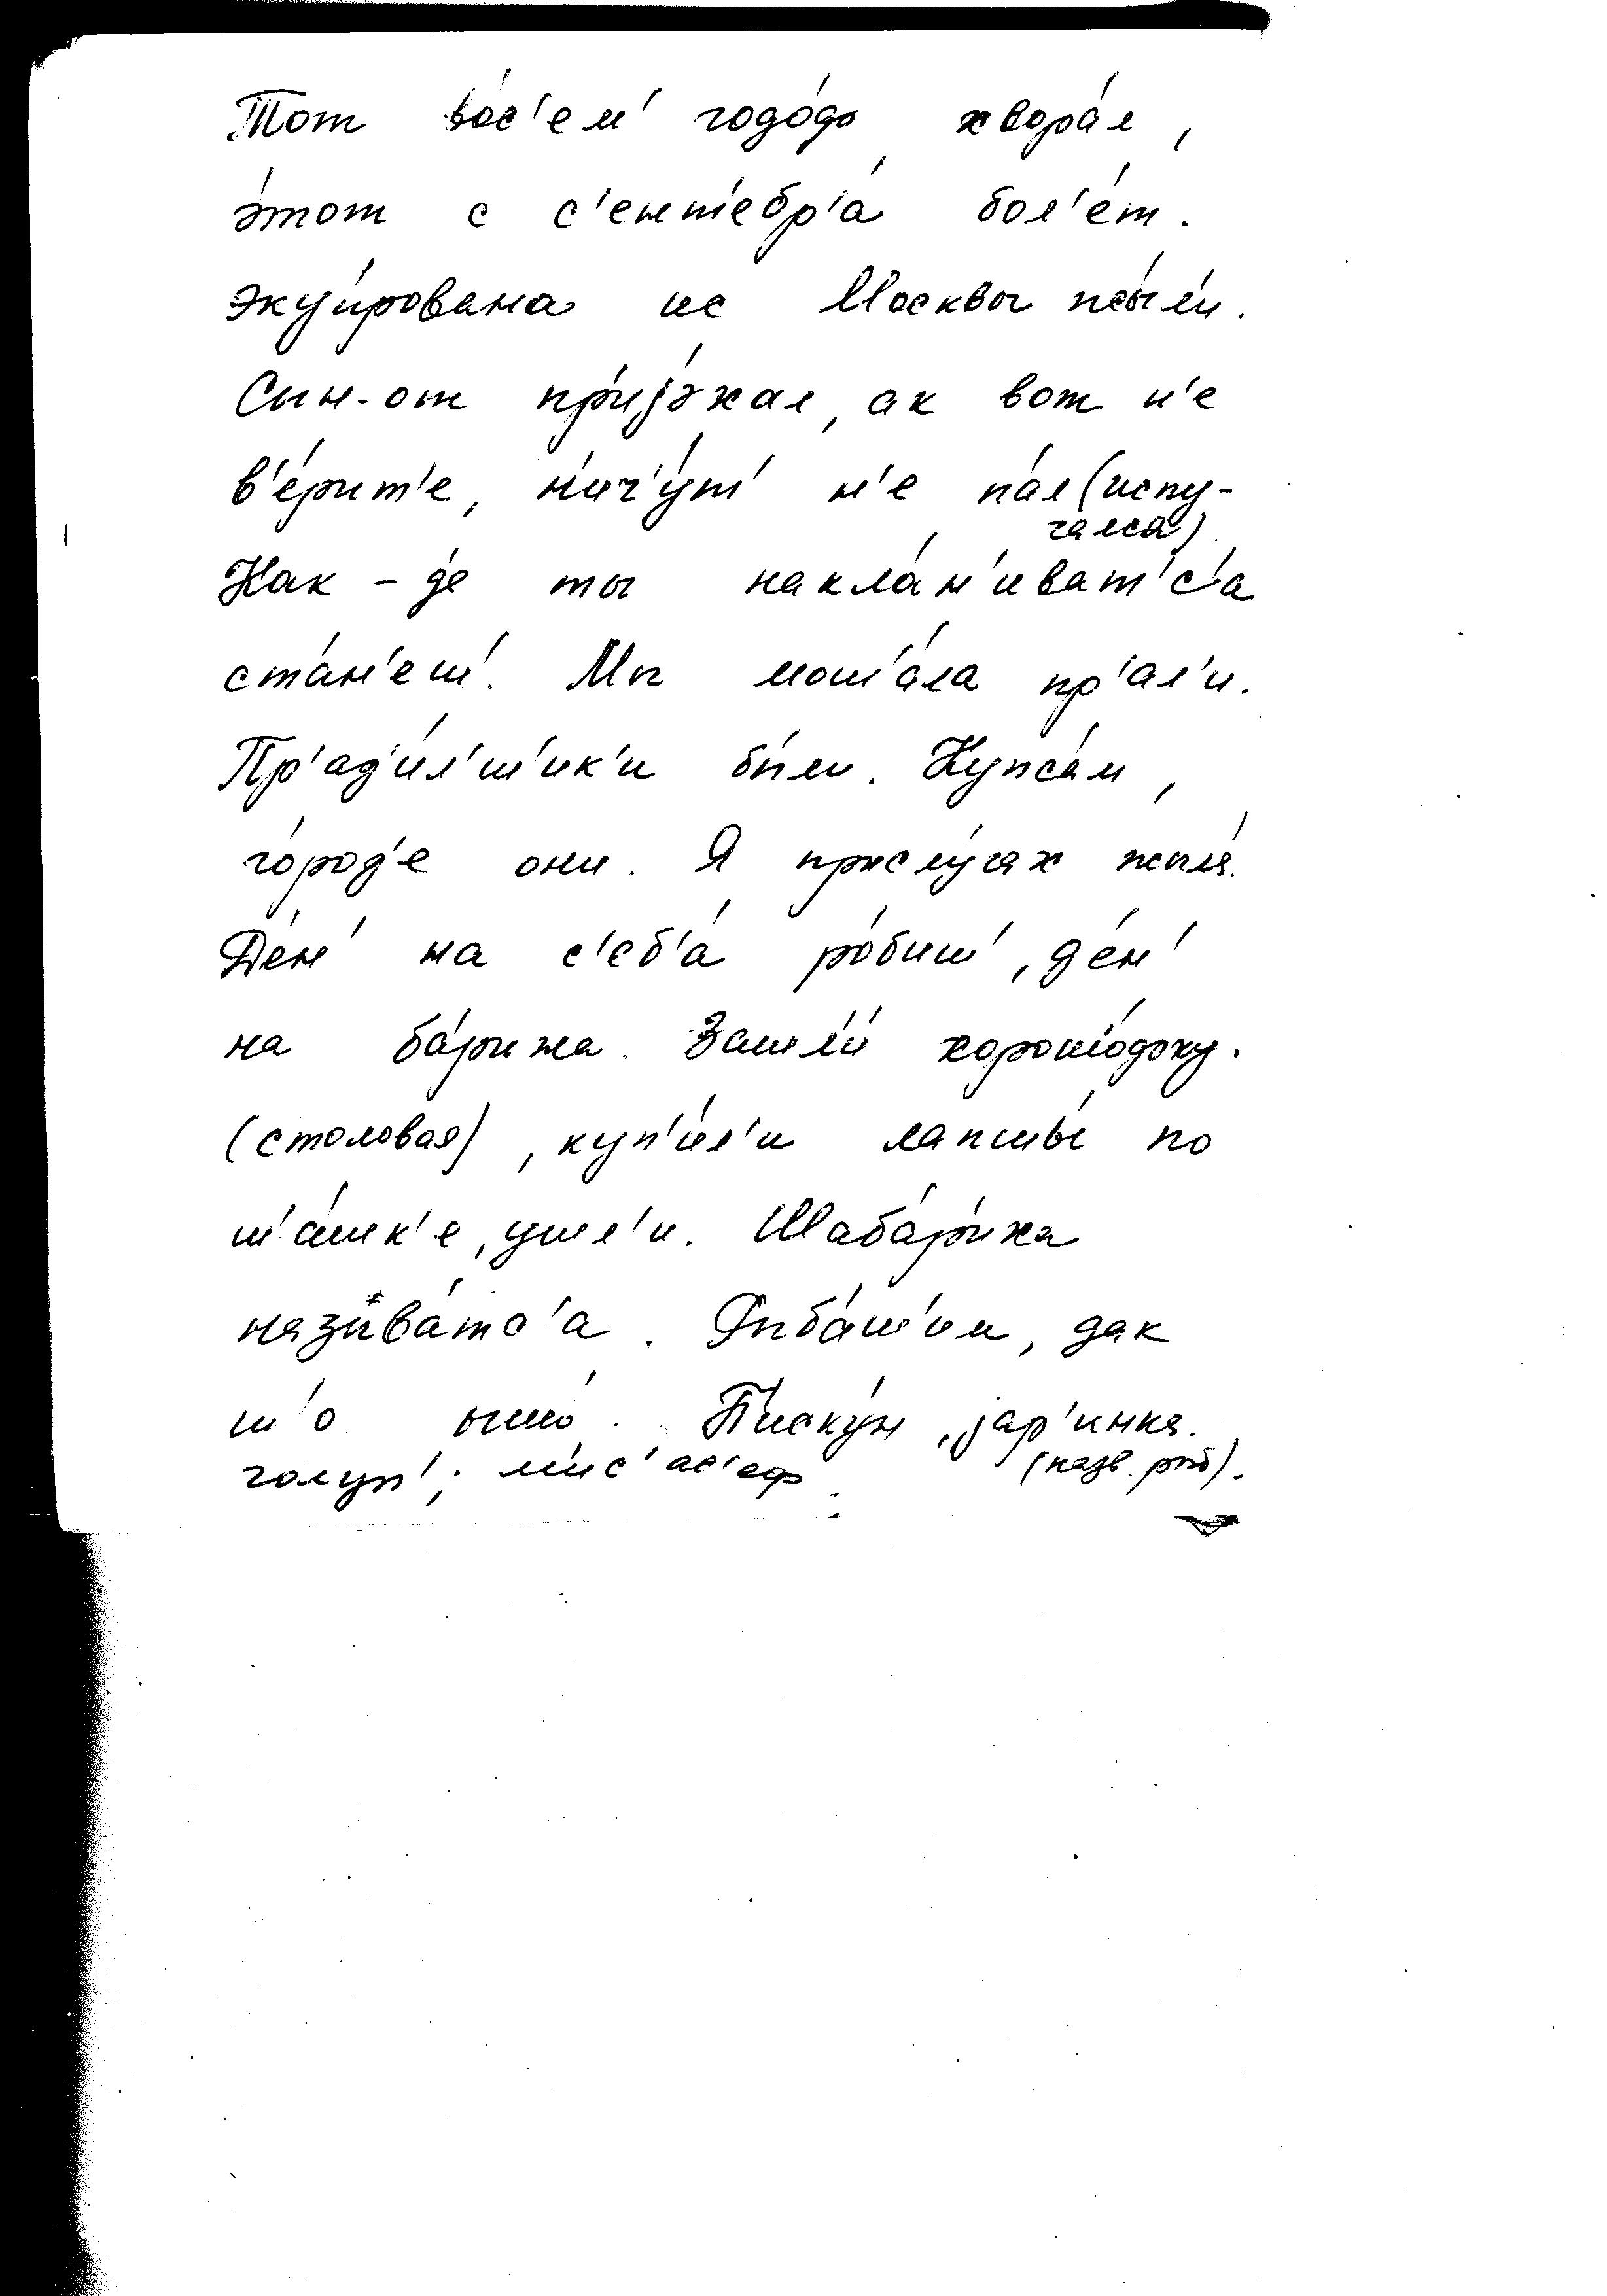 Тот во́с'ем' годо́ф хвора́л,
э́тот с с'ент'ебр'а́ бол'е́т.
Экуи́рована ис Москвы жы́л'и.
Сын-от прийэ́жал, ак вот н'е
в'е́рит'е, н'ич'у́т' н'е па́л (испу-
галса).
Как-д'е ты накла́н'иват'с'а
ста́н'еш'. Мы моч'а́ла пр'ал'и.
Пр'ад'и́л'ш'ик'и бы́ли.
го́род'е они. Я прислугах жыла́.
Д'ен' на с'еб'а́ ро́биш', д'е́н'
на ба́рина. Зашл'и́
(столовая), куп'и́л'и лапшы́ по
ч'а́шк'е, ушл'и. Шаба́р'иха
называ́тс'а. Рыба́ч'им, дак
ш'о ышо́. П'иску́н, jар'инка.
(назв. рыб).